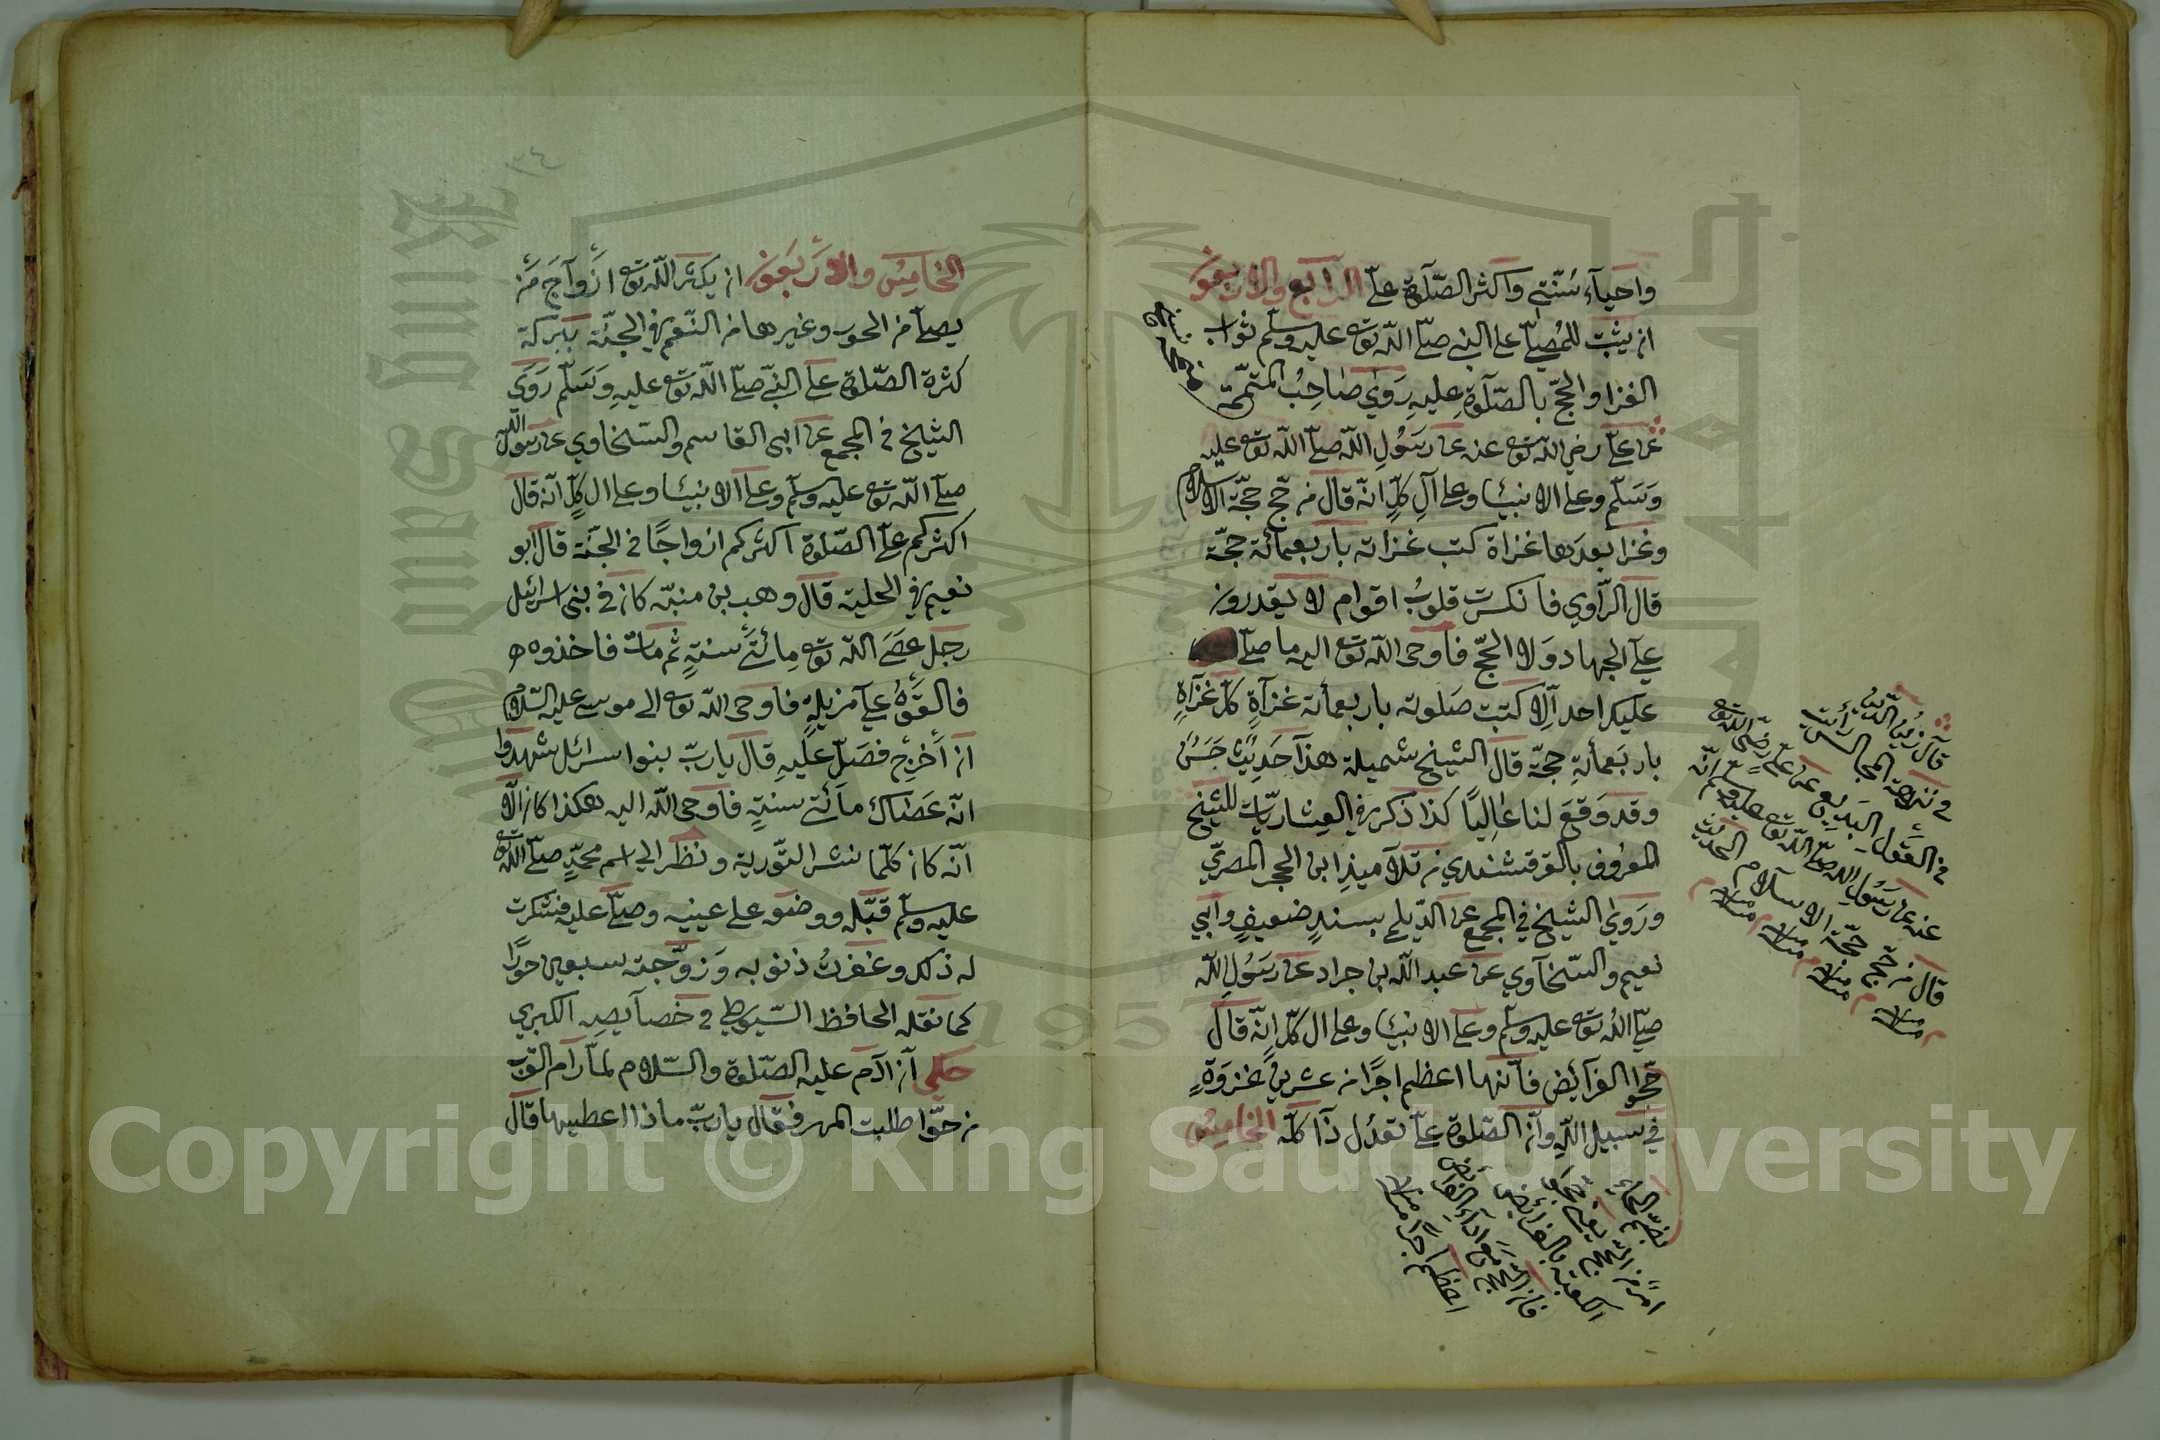 واحياء سنتي واكثر الصلاة علي الرابع والاربعون
ان يثبت للمصلي على النبي صلى الله تع عليه وسلم ثواب
الغزا والحج بالصلوة عليه روى صاحب المتممة
عن علي رضي الله تع عنه عن رسول الله صلى الله تع عليه
وسلم وعلى الانبيا وعلى آل كل انه قال من حج حجة الاسلام
وغزا بعدها غزاة كتب غزاته باربعمائة حجة
قال الراوي فانكسرت قلوب اقوام لا يقدرون
على الجهاد ولا الحج فاوحى الله تع اليه ما صلى
عليك احد الا كتبت صلوته باربعمأئة غزاة كل غزاة
باربعمأئة حجة قال الشيخ شميلة هذا حديث حسن
وقد وقع لنا عاليا كذا ذكر في العشاريات للشيخ
المعروف بالقرقشندي من تلاميذ ابن الحجر المصري
وروى الشيخ في المجمع عن الديلم بسند ضعيف وابي
نعيم والسخاوي عن عبد الله بن جراد عن رسول الله
صلى الله تع عليه وسلم وعلى الانبيا وعلى ال كل انه قال
حجوا الفرائض فانها اعظم اجرا من عشرين غزوة
في سبيل الله وان الصلوة علي تعدل ذا كله الخامس
قال زين الدين
في نزهة المجالس رأيت
في العقد البديع عن علي رضي الله تع
عنه عن رسول الله صلى الله تع عليه وسلم انه
قال من حج حجة الاسلام الحديث
بضم الحاء
امر من الحج
الكعبة بالفرائض
فان الحج مع اداء الفرائض
اعظم اجرا
١٣٤
الخامس والاربعون ان يكثر الله تع ازواج من
يصلى من الحور وغيرها من النعم في الجنة ببركة
كثرة الصلوة على النبي صلى الله تع عليه وسلم روى
الشيخ في المجمع عن ابي القاسم والسخاوي عن رسول الله
صلى الله تع عليه وسلم وعلى الانبيا وعلى ال كل انه قال
اكثركم علي الصلوة اكثركم ازواجا في الجنة قال ابو
نعيم في الحلية قال وهب بن منبه كان في بني اسرائل
رجل عصى الله تع مائتي سنة ثم مات فاخذوه
فالقوه على مزبلة فاوحى الله تع الى موسى عليه السلام
ان أخرج فصل عليه قال يارب بنوا اسرائل شهدوا
انه عصاك مائتي سنة فاوحى الله اليه هكذا كان الا
انه كان كلما نشر التورية ونظر الى اسم محمد صلى الله تع
عليه وسلم قبله ووضعه على عينيه وصلى عليه فشكرت
له ذلك وغفرت ذنوبه وزوجته سبعين حورا
كما نقله الحافظ السيوطي في خصايصه الكبرى
حكي ان آدم عليه الصلوة والسلام لما رام القرب
من حوا طلبت المهر فقال يارب ماذا اعطيها قال
Copyright © King Saud University
1957